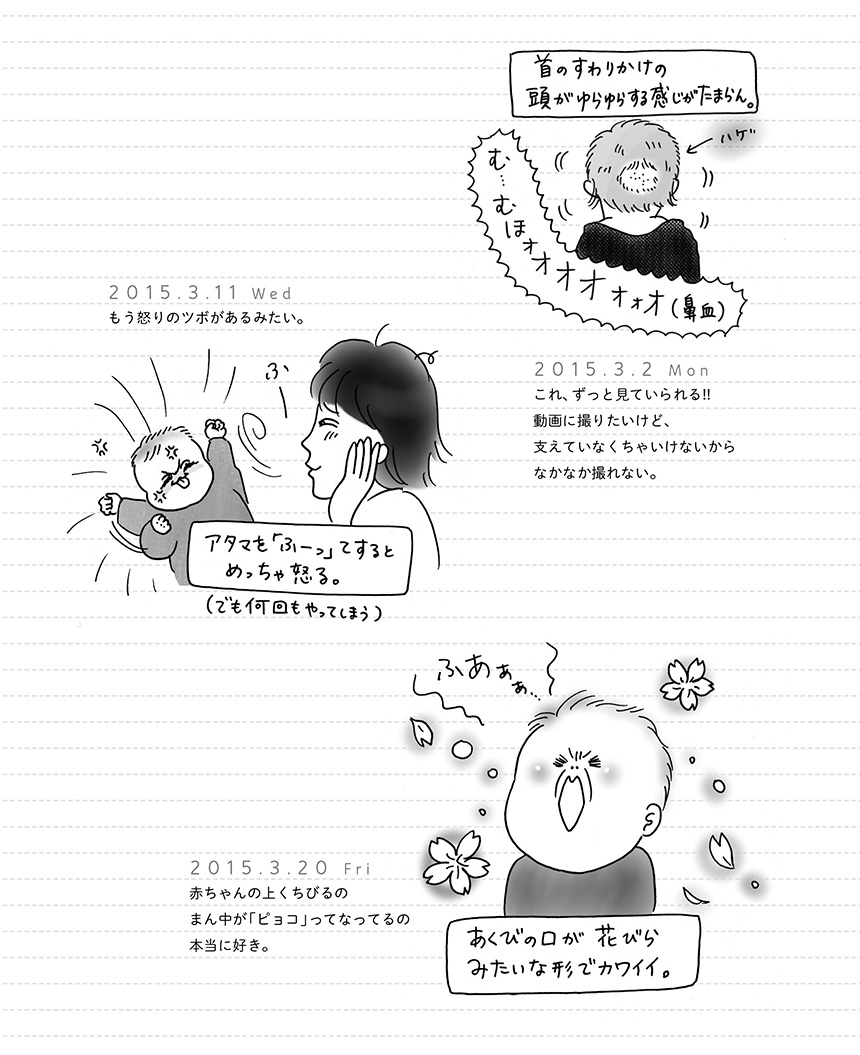 首のすわりかけの
頭がゆらゆらする感じがたまらん。
ハゲ
む…むほォオオオオォォオ(鼻血)
2015.3.2 Mon
これ、ずっと見ていられる!!
動画に撮りたいけど、
支えていなくちゃいけないから
なかなか撮れない。
2015.3.11 Wed
もう怒りのツボがあるみたい。
ふー
アタマも「ふーっ」てすると
めっちゃ怒る。
(でも何回もやってしまう)
ふあぁぁ…
2015.3.20 Fri
赤ちゃんの上くちびるの
まん中が「ピョコ」ってなってるの
本当に好き。
あくびの口が花びら
みたいな形でカワイイ。